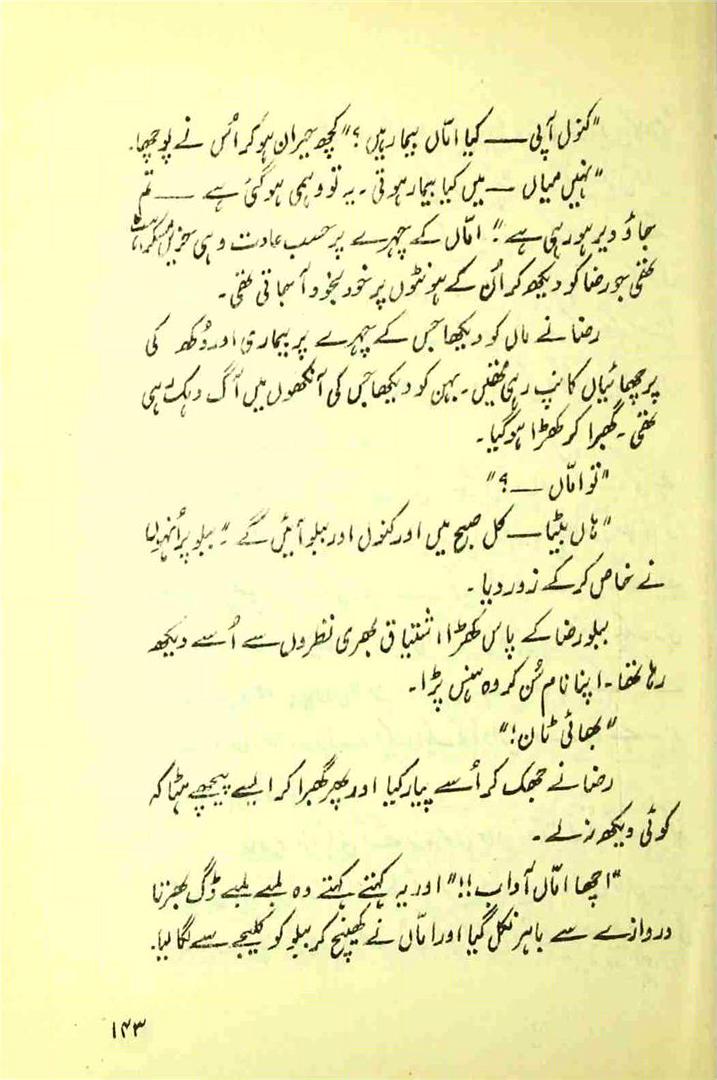 "کنول آپی — کیا امّاں بیمار ہیں؟" کچھ حیران ہو کر اُس نے پوچھا۔
"نہیں میاں — میں کیا بیمار ہوتی۔ یہ تو وہمی ہو گئی ہے — تم
جاؤ دیر ہو رہی ہے۔" امّاں کے چہرے پر حسب عادت وہی حزیں مسکراہٹ
تھی جو رضا کو دیکھ کر اُن کے ہونٹوں پر خود بخود آ جاتی تھی۔
رضا نے ماں کو دیکھا جس کے چہرے پر بیماری اور دُکھ کی
پرچھائیاں کانپ رہی تھیں۔ بہن کو دیکھا جس کی آنکھوں میں آگ دہک رہی
تھی۔ گھبرا کر کھڑا ہو گیا۔
"تو امّاں —؟"
"ہاں بٹیا — کل صبح میں اور کنول اور ببلو آئیں گے۔" ببلو پر اُنہوں
نے خاص کر کے زور دیا۔
ببلو رضا کے پاس کھڑا اشتیاق بھری نظروں سے اُسے دیکھ
رہا تھا۔ اپنا نام سُن کر وہ ہنس پڑا۔
"بھائی ٹان!"
رضا نے جھک کر اُسے پیار کیا اور پھر گھبرا کر ایسے پیچھے ہٹا کہ
کوئی دیکھ نہ لے۔
"اچھا امّاں آداب!!" اور یہ کہتے کہتے وہ لمبے لمبے ڈگ بھرتا
دروازے سے باہر نکل گیا اور امّاں نے کھینچ کر ببلو کو کلیجے سے لگا لیا۔
۱۴۳